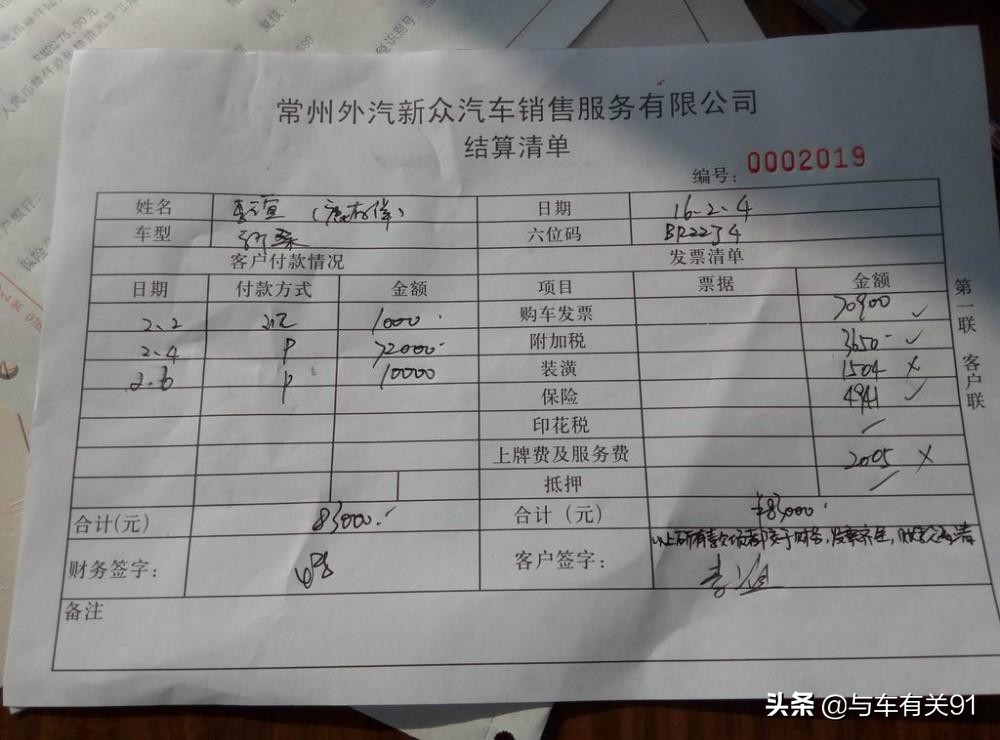 常州外汽新众汽车销售服务有限公司
结算清单
编号: 0002019
姓名 日期 16-2-4
车型 六位码
客户付款情况 发票清单
日期 付款方式 金额 项目 票据 金额
2.2 1000 购车发票 70900 ✓
2.4 P 72000 附加税 3650 ✓
2.6 P 10000 装潢 1504 ×
保险 4941 ✓
印花税
上牌费及服务费 2005 ×
抵押
合计(元) 83000 合计(元) ¥83000
财务签字: 客户签字:
备注
第一联 客户联
头条 @与车有关91